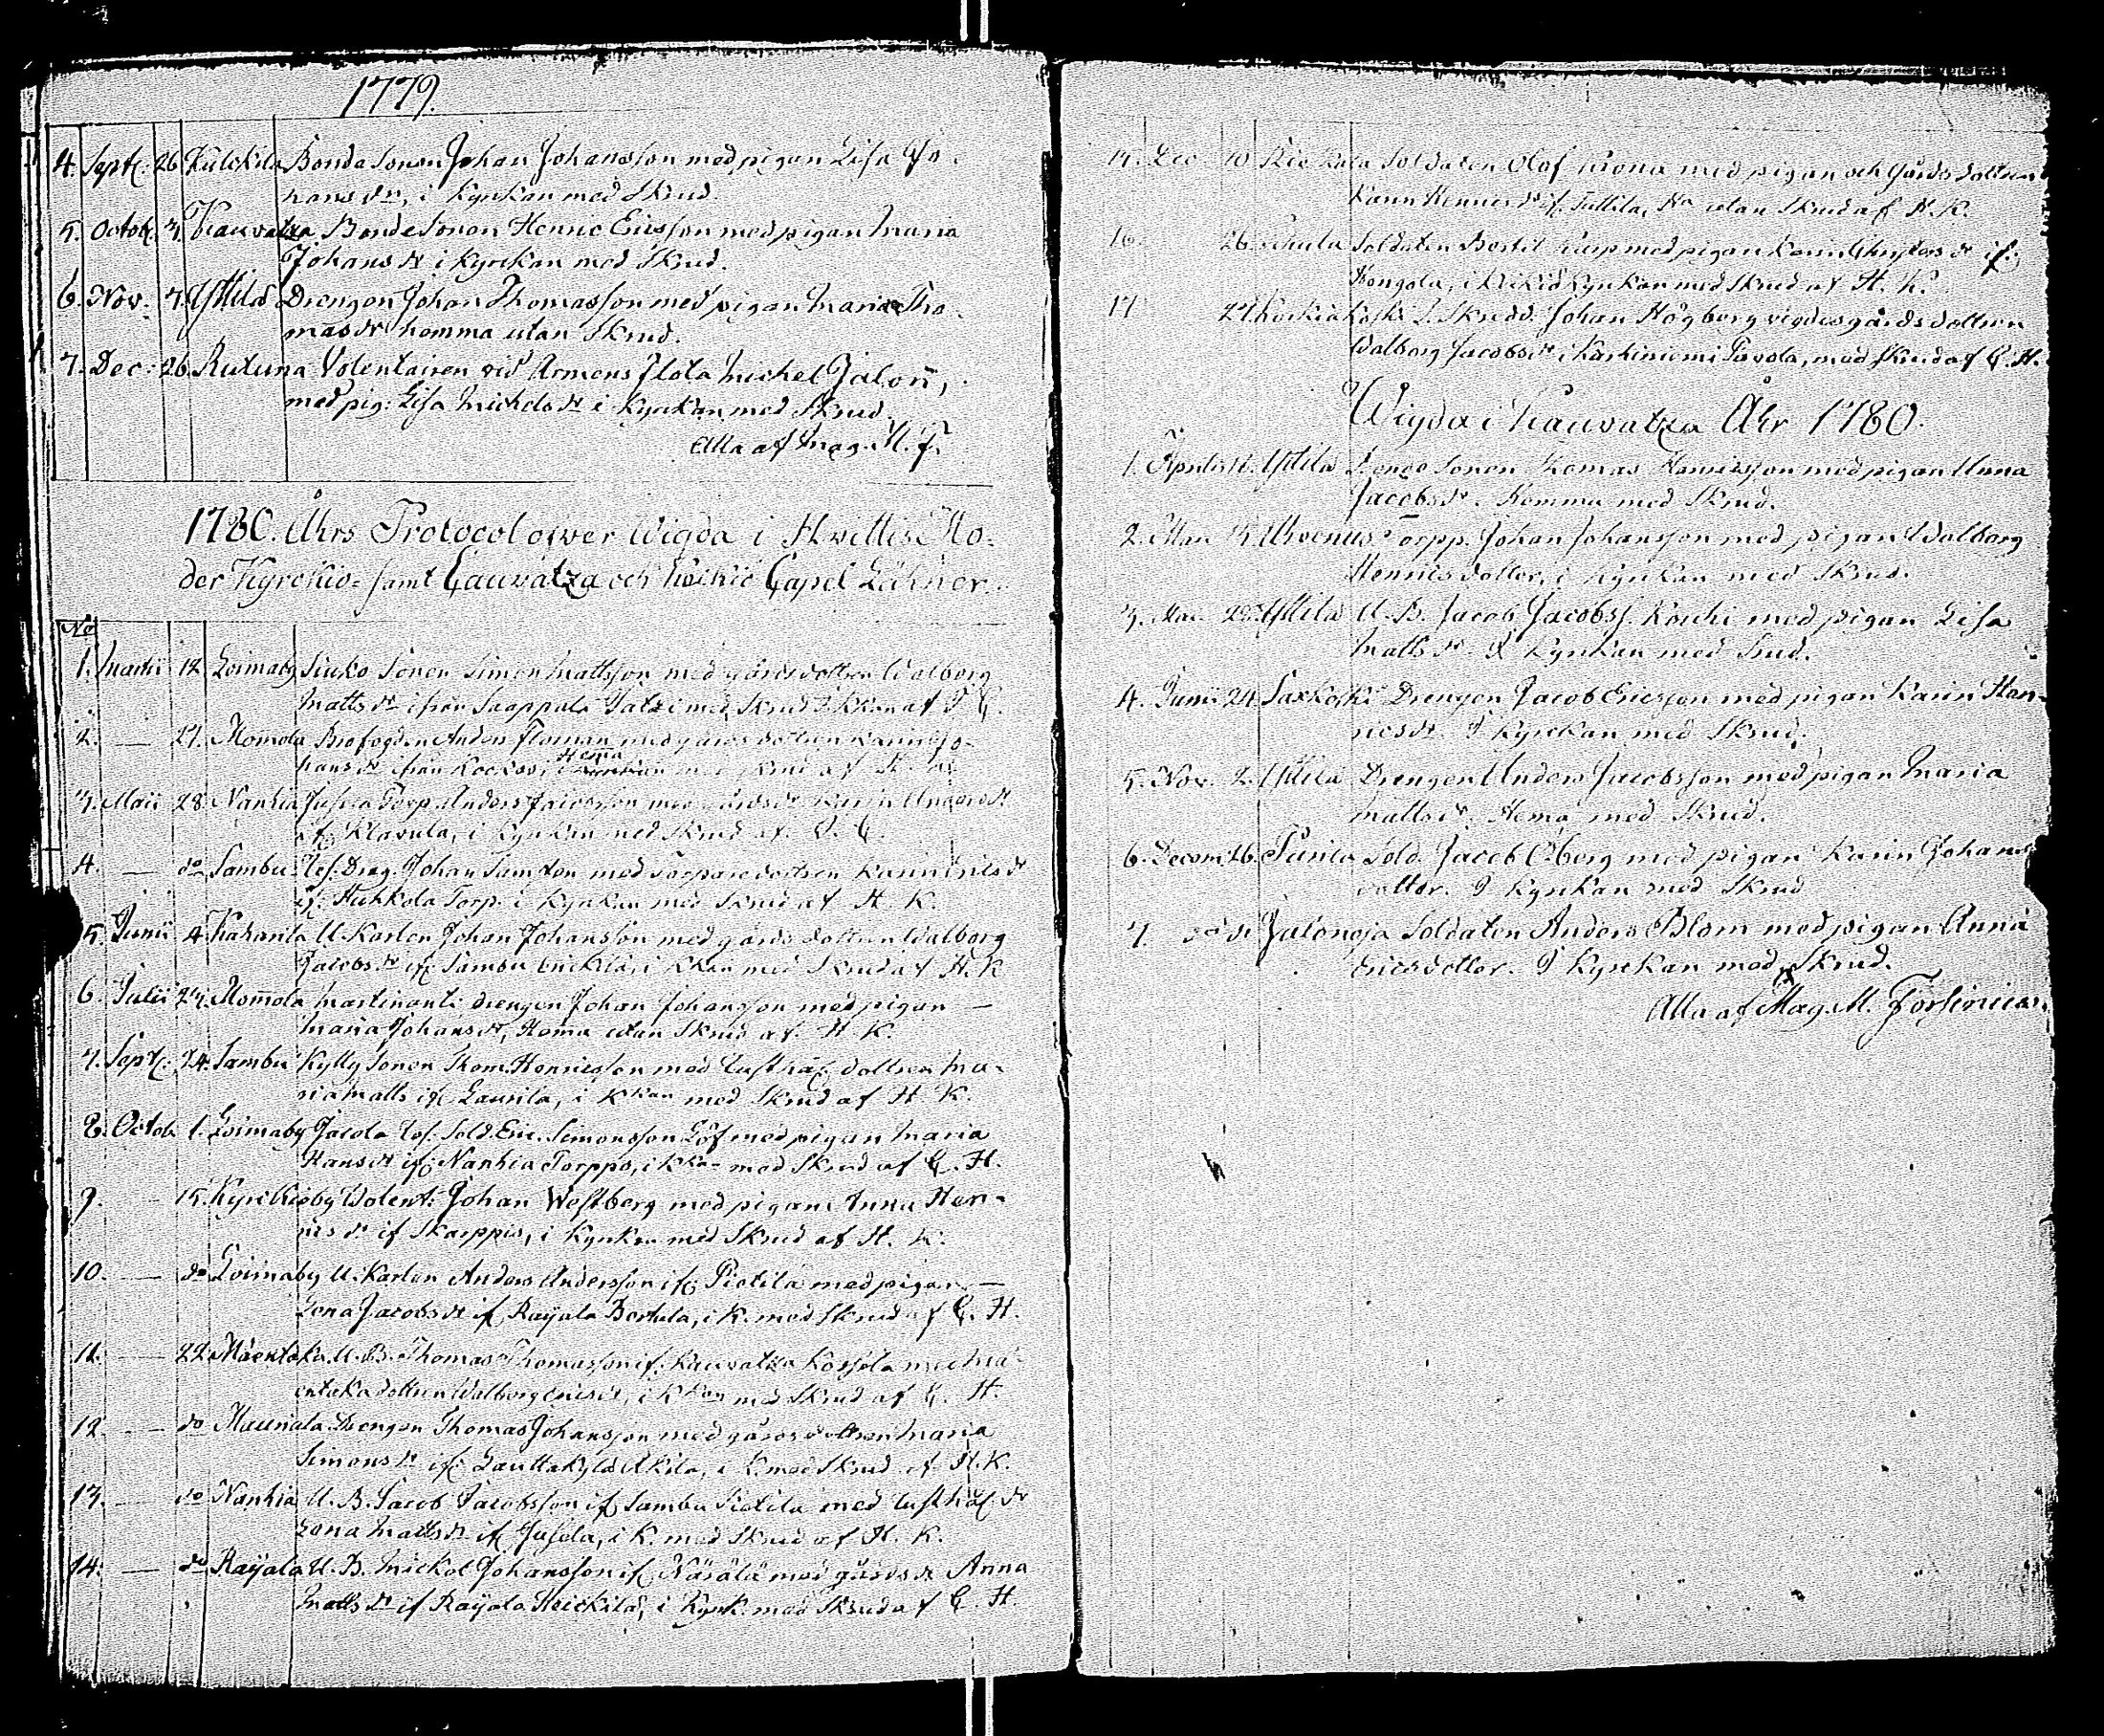 1779.
4. Sept: 26 Kulckila Bonda Sonen Johan Johansson med pigan Lisa Jo-
hans dr, i Kyrkan med Skrud.
5. Octob: 3. Kauvatza Bonde Sonen Henric Ericsson med pigan Maria
Johans dr i Kyrckan med Skrud.
6. Nov: 7. Yttilä Drengen Johan Thomasson med pigan Maria Tho-
mas dr hemma utan Skrud.
7. Dec: 26. Rutuna Volentairen vid Armens flota Michel Jalon,
med pig: Lisa Michels dr i Kyrckan med Skrud.
Alla af Mag. M. F.
1780. Åhrs Protocol öfwer Wigda i Hwittis Mo-
der Kyrckio- samt Cauvatza och Keikiö Capel Gähner.
No
1. Martii 12 Loimaby Siuko Sonen Simon Mattsson med gårds dottren Walborg
Matts dr ifrån Saappala med Skrud i Kkan af
2. — 27. Mommola Brofogden Anders Floman med gårds dottren Karin Jo-
hans dr ifrån Kockos, i Hema med skrud af H K
3. Maii 28. Nanhia Jusela Torp. Anders Jacobsson med gårds dr Karin Anders dr
if: Klavula, i Kyrckan med Skrud af
4. — do Sambu Afs. Drag. Johan Sumfon med Torpare dottren Karin dr
if: Huhkola Torp. i Kyrckan med Skrud af H. K.
5. Junii 4. Kaharila U. Karlen Johan Johansson med gårds dottren Walborg
Jacobs dr if: Sambu Erickilä, i Kkan med Skrud af H. K
6. Julii 23. Mommola Martinanti drengen Johan Johansson med pigan —
Maria Johans dr, Hema utan Skrud af H. K.
7. Sept: 24. Sambu Kylly Sonen Thom. Henricsson med Eusthåf. dottren Ma-
ria Matts if: Laurila, i Kkan med Skrud af H. K.
8. Octob. 1. Loimaby Jacola Afs. Sold. Eric Simonsson Löf med pigan Maria
Hans dr if: Nanhia Torppo, i Kkan med Skrud af C. H.
9. — 15. Kyrckioby Wolent: Johan Westberg med pigan Anna Hen-
rics dr if Skarppis, i Kyrckan med Skrud af H. K.
10. — do Loimaby U. Karlen Anders Andersson if: Pietilä med pigan —
Lena Jacobs dr if. Raijala Bertula, i K. med Skrud af C. H.
11. — 22. Mäentaka U. B. Thomas Thomasson if: Kauvatza Korpela med Mä-
entaka dottren Walborg Erics dr, i Kkan med Skrud af C. H.
12. — do Mauriala Drengen Thomas Johansson med gårds dottren Maria
Simons dr if: Lauttakylä Akila, i K. med Skrud af H. K.
13. — do Nanhia U. B. Jacob Jacobsson if. Sambu Pietilä med Eusthåf. dr
Lena Matts dr if. Jusela, i K. med Skrud af H. K.
14. — do Raijala U. B. Mickel Johansson if. Näsälä med gårds dr Anna
Matts dr if Raijala Heickilä, i Kyrk. med Skrud af C. H.
Dec. 10 Soldaten Olof Krona med pigan och Gårds dottren
Karin Henrics dr if. Tullila, Ha utan Skrud af H. K.
16. 26. Soldaten Bertil Karp med pigan Karin Christers dr if:
Kangola, i Keikiö Kyrckan med Skrud af H. K.
17 27. Korkiakoski S. Skrädd. Johan Högberg wigdes gårds dottren
Walborg Jacobs dr i Karhiniemi Pavola, med Skrud af C. H.
Wigda i Kauvatza Åhr 1780.
1. Aprilis 16. Yttilä Bonde Sonen Thomas Henricsson med pigan Anna
Jacobs dr. Hemma med Skrud.
2. Torpp. Johan Johansson med pigan Walborg
Henrics dotter, i Kyrckan med Skrud.
3. 28. Yttilä U. B. Jacob Jacobss. Kouhi med pigan Lisa
Matts dr. I Kyrckan med Srud.
4. Junii 24. Saxkoski Drengen Jacob Ericsson med pigan Karin Hen-
rics dr. I Kyrckan med Skrud.
5. Nov. 2. Yttilä Drengen Anders Jacobsson med pigan Maria
Matts dr. Hema med Skrud.
6. Decem: 26. Purila Sold. Jacob Öberg med pigan Karin Johans
dotter. I Kyrckan med Skrud
7. do d. Jalonoja Soldaten Anders Blom med pigan Anna
Ericsdotter. I Kyrckan med Skrud.
Alla af Mag. M. Forselius.